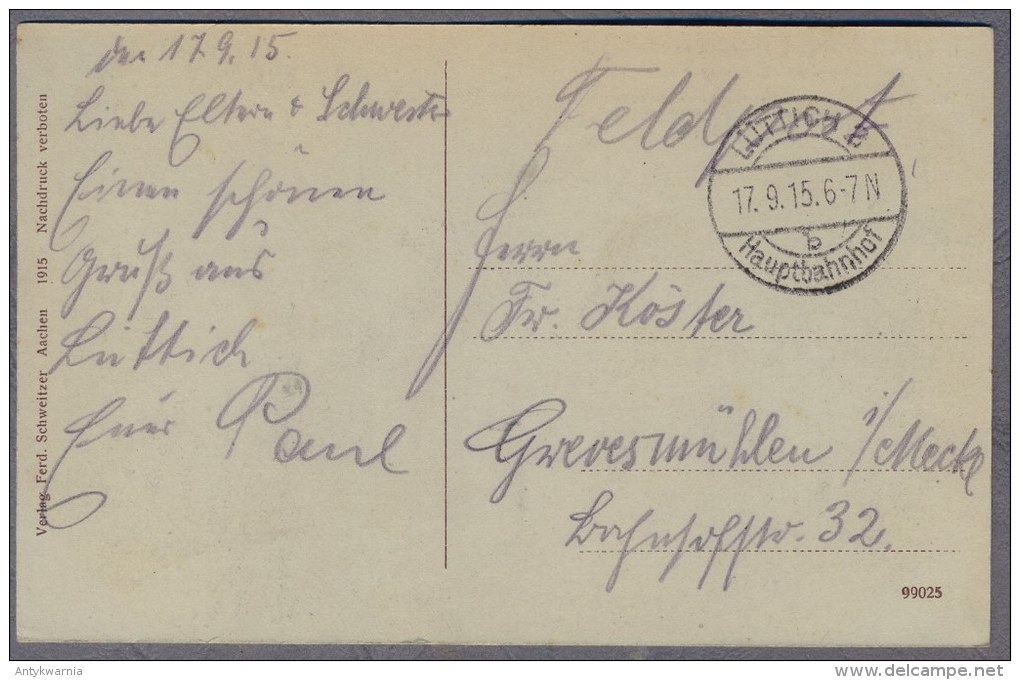 den 17.9.15.
Liebe Eltern & Schwester
Einen schönen
Gruß aus
Lüttich
Euer Paul
Feldpost
LÜTTICH B
17. 9. 15. 6-7 N
b
Hauptbahnhof
Herrn
Fr. Köster
Grevesmühlen i/Meckl
Bahnhofstr. 32.
Verlag Ferd. Schweitzer Aachen 1915 Nachdruck verboten
99025
Antykwarnia
www.delcampe.net